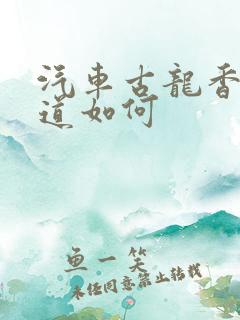 汽車古龍香
道如何
魚一笑
未经同意禁止转载